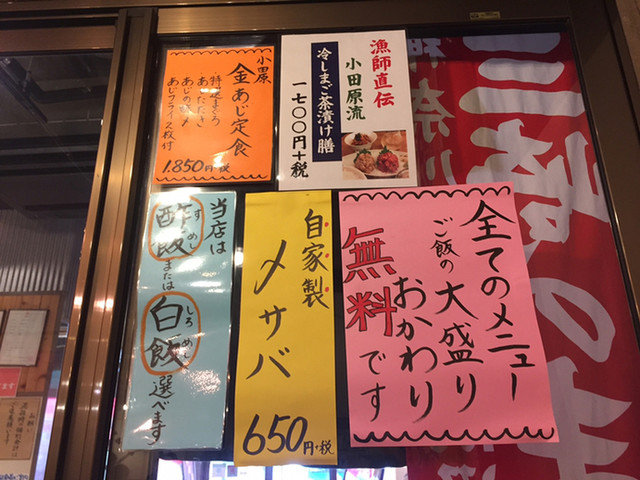 小田原
金あじ定食
特選まぐろ
あじたたき
あじの〆
あじフライ2枚付
1.850円+税
漁師直伝
小田原流
冷しまご茶漬け膳
一七〇〇円+税
全てのメニュー
ご飯の大盛り
おかわり
無料です
自家製
〆サバ
650円+税
当店は
酢飯または
すめし
白飯選べます
しろめし
三崎の
神奈川